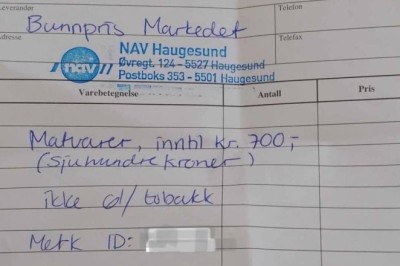 Leverandør
Bunnpris Markedet
Telefon
Adresse
Telefax
nav
NAV Haugesund
Øvregt. 124 - 5527 Haugesund
Postboks 353 - 5501 Haugesund
Varebetegnelse Antall Pris
Matvarer, innhl kr. 700,-
(sjuhundre kroner)
ikke øl/tobakk
Merk ID: